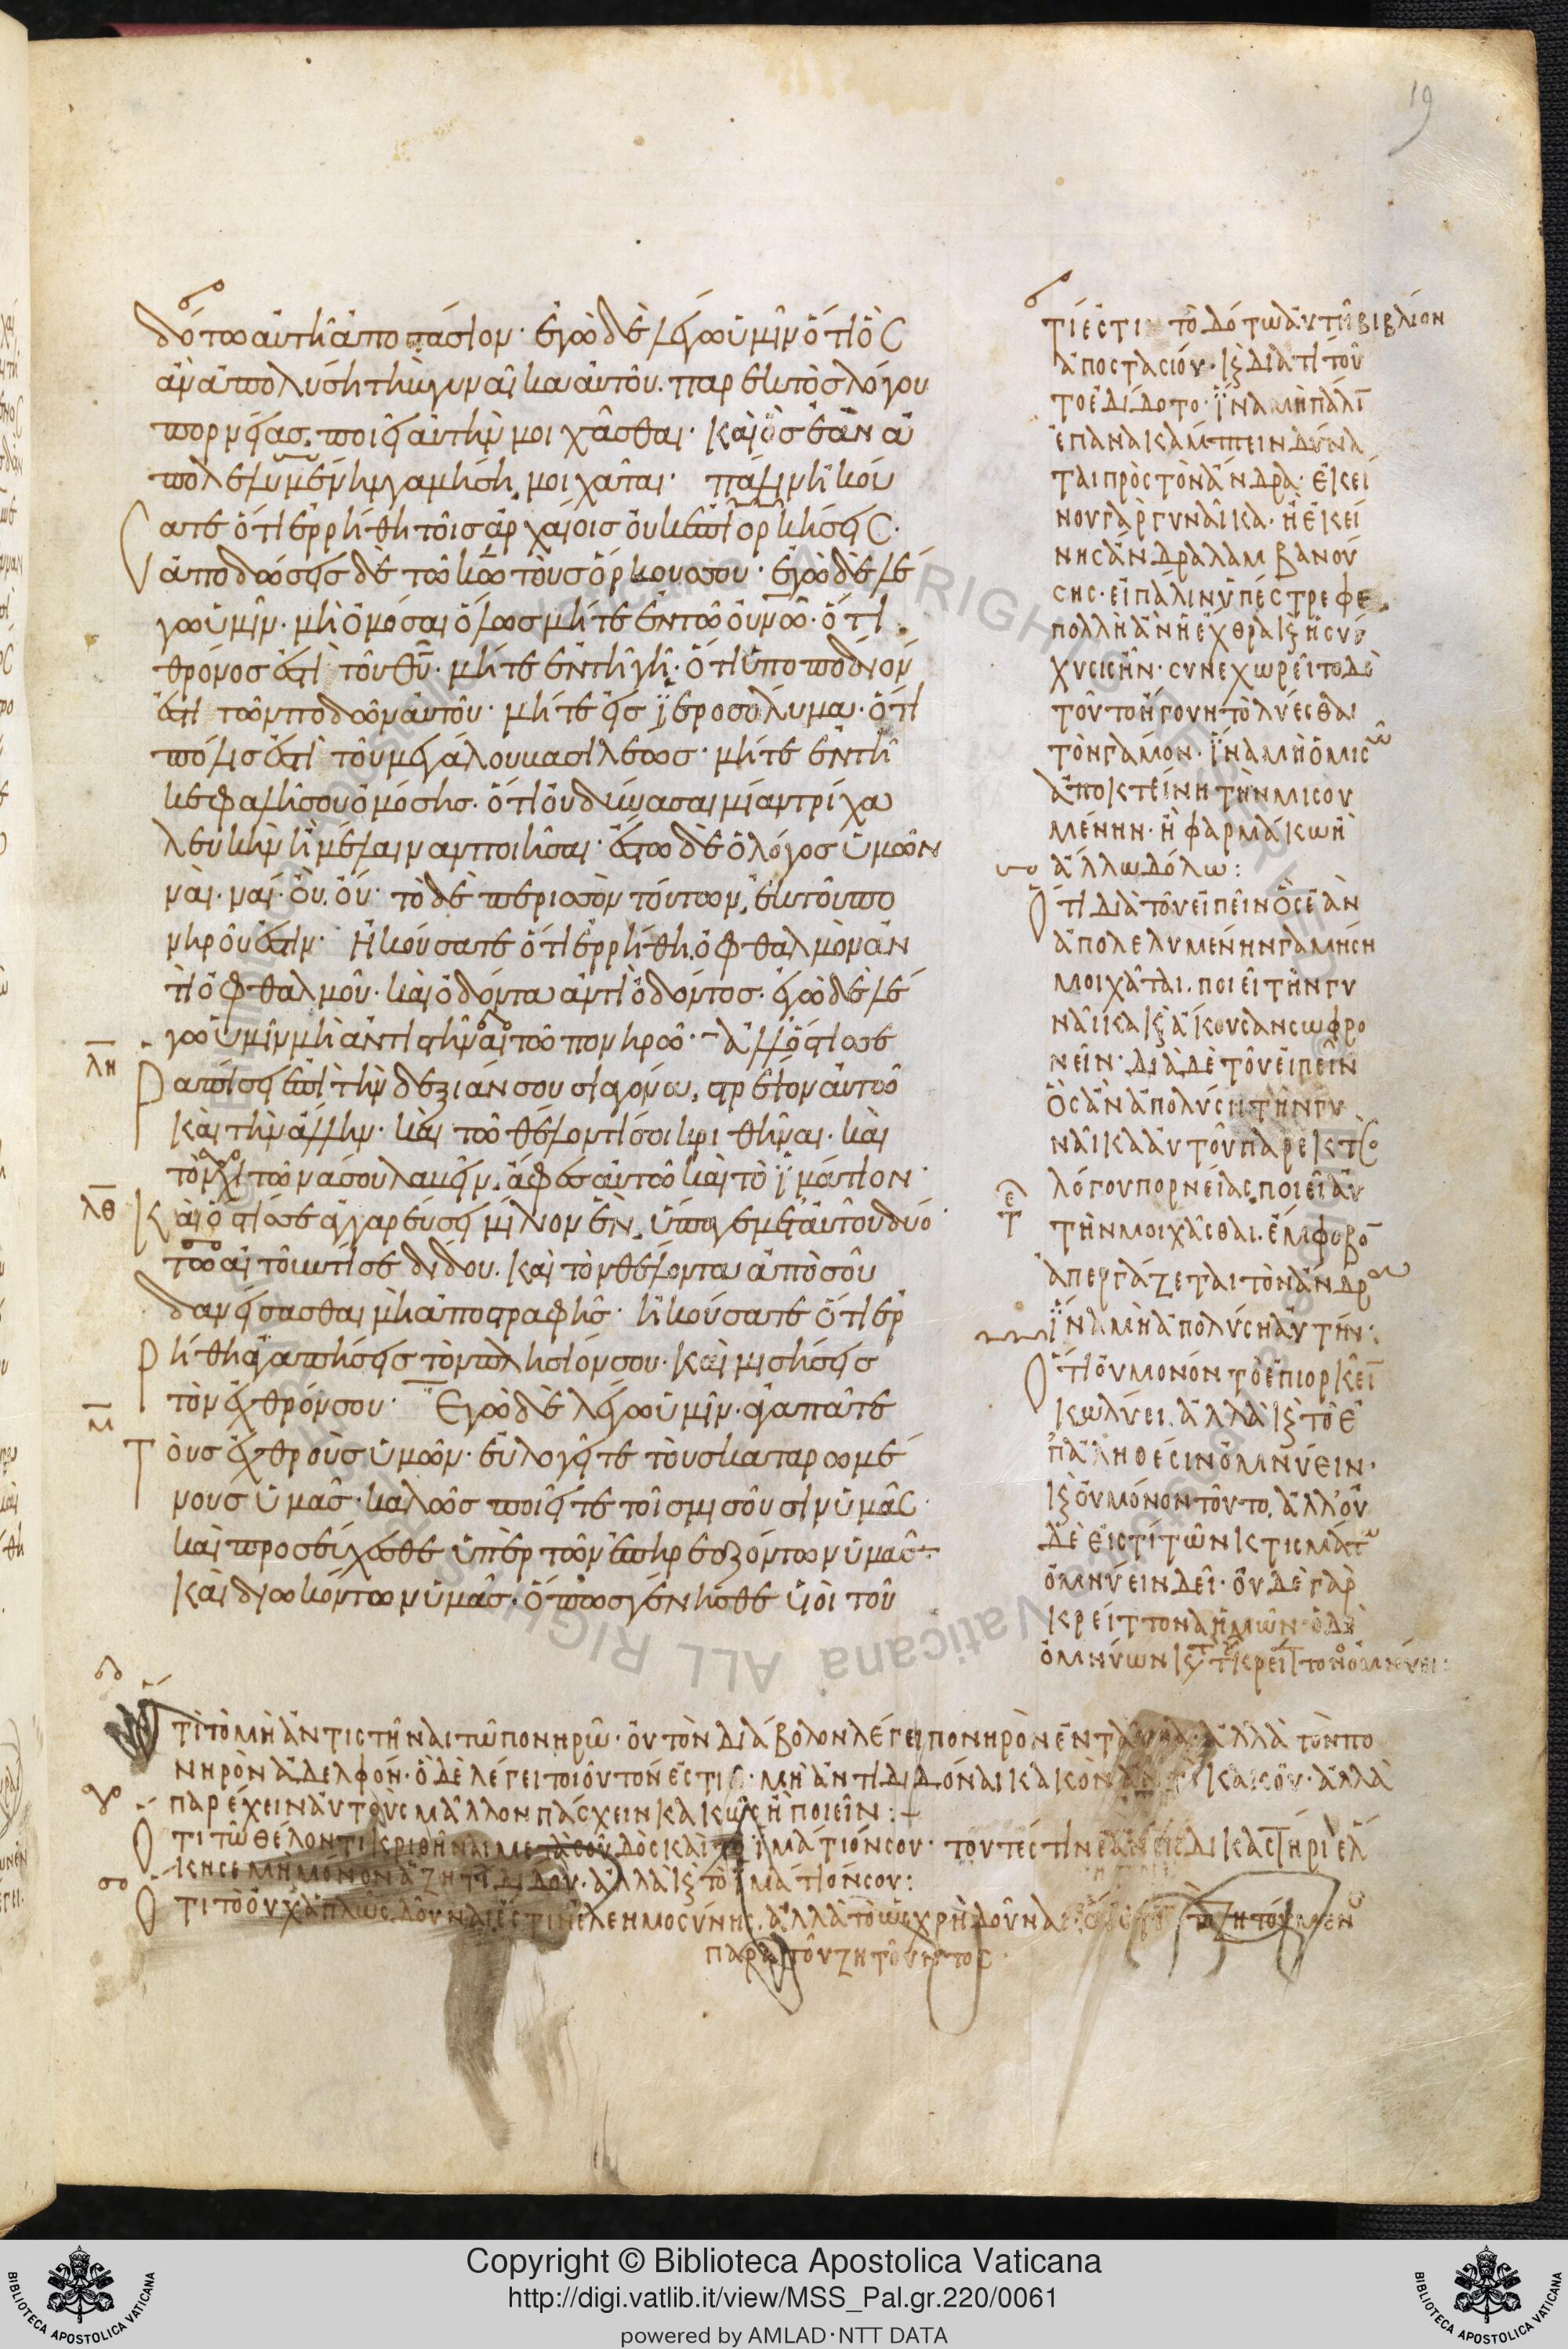 19
δότω αὐτῆ ἀποστάσιον· ἐγὼ δὲ λέγω ὑμῖν ὅτι ὃς
ἂν ἀπολύση τὴν γυναῖκα αὐτοῦ. παρεκτὸς λόγου
πορνείας, ποιεῖ αὐτὴν μοιχᾶσθαι· καὶ ὃς ἐὰν ἀ
πολελυμένην γαμήση, μοιχᾶται· πάλιν ἠκού
σατε ὅτι ἐρρήθη τοῖς ἀρχαίοις οὐκ ἐπιορκήσεις·
ἀποδώσεις δὲ τῶ κω τοὺς ὅρκους σου· ἐγὼ δὲ λέ
γω ὑμῖν· μὴ ὀμόσαι ὅλως μήτε ἐν τῶ οὐνῶ· ὅτι
θρόνος ἐστὶ τοῦ θυ· μήτε ἐν τῆ γῆ· ὅτι ὑποπόδιόν
ἐστι τῶν ποδῶν αὐτοῦ· μήτε εἰς ϊεροσόλυμα· ὅτι
πόλις ἐστὶ τοῦ μεγάλου βασιλέως· μήτε ἐν τῆ
κεφαλῆ σου ὀμόσης· ὅτι οὐ δύνασαι μίαν τρίχα
λευκὴν ἢ μέλαιναν ποιῆσαι· ἔστω δὲ ὁ λόγος ὑμῶν
ναὶ· ναί· οὒ. οὔ· τὸ δὲ περισσὸν τούτων, ἐκ τοῦ πο
νηροῦ ἐστιν· Ἠκούσατε ὅτι ἐρρήθη. ὀφθαλμὸν ἀν
τὶ ὀφθαλμοῦ· καὶ ὀδόντα ἀντὶ ὀδόντος· ἐγὼ δὲ λέ
γω ὑμῖν μὴ ἀντιστῆναι τῶ πονηρῶ· ἀλλ' ὅστις σε
λη
ραπίσει ἐπὶ τὴν δεξιάν σου σιαγόνα, στρέψον αὐτῶ
καὶ τὴν ἄλλην· καὶ τῶ θέλοντί σοι κριθῆναι· καὶ
τὸν χιτῶνά σου λαβεῖν, ἄφες αὐτῶ καὶ τὸ ϊμάτιον·
λθ
καὶ ὅστις σε ἀγγαρεύσει μίλιον ἓν, ὕπαγε μετ' αὐτοῦ δύο·
τῶ αἰτοῦντί σε δίδου. καὶ τὸν θέλοντα ἀπὸ σοῦ
δανείσασθαι μὴ ἀποστραφῆς· ἠκούσατε ὅτι ἐρ
ρήθη ἀγαπήσεις τὸν πλησίον σου· καὶ μισήσεις
τὸν ἐχθρόν σου· Ἐγὼ δὲ λέγω ὑμῖν· ἀγαπᾶτε
μ
τοὺς ἐχθροὺς ὑμῶν· εὐλογεῖτε τοὺς καταρωμέ
νους ὑμᾶς· καλῶς ποιεῖτε τοῖς μισοῦσιν ὑμᾶς·
καὶ προσεύχεσθε ὑπὲρ τῶν ἐπηρεαζόντων ὑμᾶς
καὶ διωκόντων ὑμᾶς· ὅπως γένησθε υἱοὶ τοῦ
τί ἐστι τὸ δότω αὐτῆ βιβλίον
ἀποστασίου· κ διατί τοῦ
το ἐδίδοτο· ϊνα μὴ πάλι
ἐπανακάμπτειν δύνα
ται πρὸς τὸν ἄνδρα· ἐκεί
νου γὰρ γυναῖκα· ἢ ἐκεί
νης ἄνδρα λαμβανού
σης· εἰ πάλιν ὑπέστρεφε,
πολλὴ ἂν ἡ ἔχθρα κ ἡ σύγ
χυσις ἦν· συνεχωρεῖτο δὲ
τοῦτο ἤγουν τὸ λύεσθαι
τὸν γάμον· ϊνα μὴ ὁ μισῶ
ἀποκτείνη τὴν μισου
μένην· ἢ φαρμάκω ἢ
ἄλλω δόλω:
Ὅτι διὰ τοῦ εἰπεῖν ὃς ἐὰν
ἀπολελυμένην γαμήση
μοιχᾶται. ποιεῖ τὴν γυ
ναῖκα κ ἄκουσαν σωφρο
νεῖν· διὰ δὲ τοῦ εἰπεῖν
ὃς ἂν ἀπολύση τὴν γυ
ναῖκα αὐτοῦ παρεκτὸς
λόγου πορνείας, ποιεῖ αὐ
τὴν μοιχᾶσθαι. ἔμφοβο
ἀπεργάζεται τὸν ἄνδρα
ϊνα μὴ ἀπολύση αὐτήν:
Ὅτι οὐ μόνον τὸ ἐπιορκεῖ
κωλύει. ἀλλὰ κ τὸ ἐ
π' ἀληθέσιν ὀμνύειν·
κ οὐ μόνον τοῦτο, ἀλλ' οὐ
δὲ εἴς τι τῶν κτισμάτ
ὀμνύειν δεῖ· οὐδὲ γὰρ
κρείττονα ἡμῶν· ὁ δὲ
ὀμνύων κατὰ τι κρείττονος ὀμνύει:
τί τὸ μὴ ἀντιστῆναι τῶ πονηρῶ· οὐ τὸν διάβολον λέγει πονηρὸν ἐνταῦθα· ἀλλὰ τὸν πο
νηρὸν ἀδελφόν· ὃ δὲ λέγει τοιοῦτόν ἐστι· μὴ ἀντιδιδόναι κακὸν ἀντὶ κακοῦ· ἀλλὰ
παρέχειν αὐτοὺς μᾶλλον πάσχειν κακῶς ἢ ποιεῖν:
Ὅτι τῶ θέλοντι κριθῆναι μετὰ σοῦ δὸς καὶ τὸ ϊμάτιόν σου· τουτέστιν ἐὰν εἰς δικαστήρι ἑλ
κη σε μὴ μόνον ἃ ζητεῖ δίδου· ἀλλὰ κ τὸ ϊμάτιόν σου:
Ὅτι τὸ οὐχ ἁπλῶς δοῦναι ἐστὶν ἐλεημοσύνης, ἀλλὰ τὸ ὡς χρὴ δοῦναι τὸ ζητούμενον
παρὰ τοῦ ζητοῦντος
Copyright © Biblioteca Apostolica Vaticana
http://digi.vatlib.it/view/MSS_Pal.gr.220/0061
powered by AMLAD·NTT DATA
BIBLIOTECA APOSTOLICA VATICANA
BIBLIOTECA APOSTOLICA VATICANA